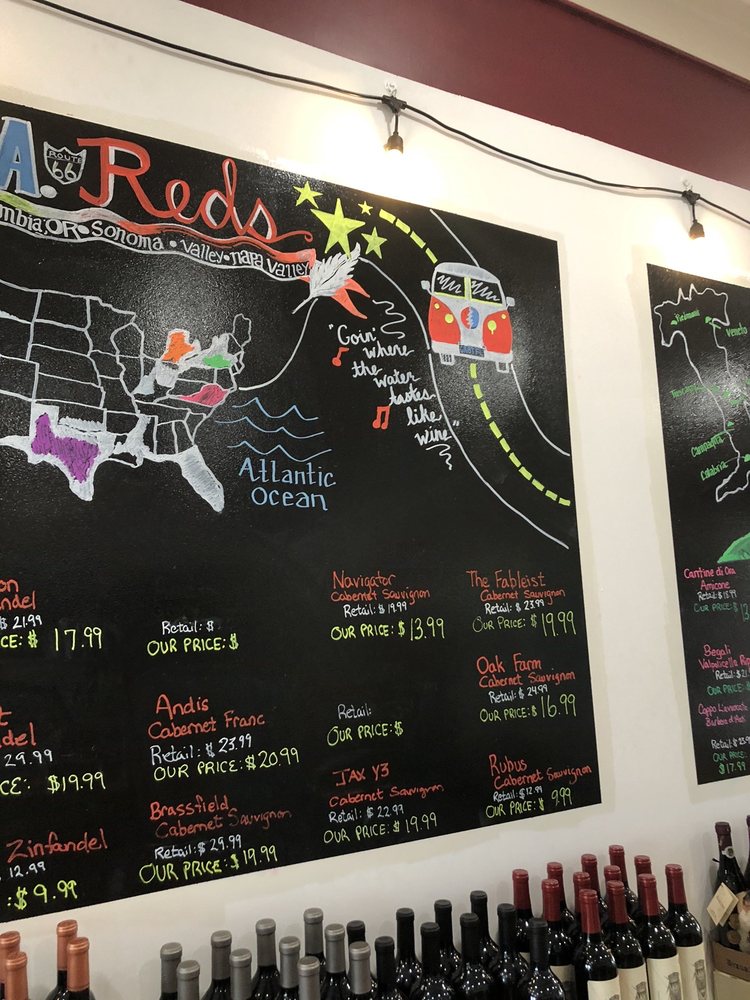 A. ROUTE 66 Reds
OR • Sonoma • Valley • Napa Valley
"Goin'
where
the
water
tastes
like
wine"
Atlantic
Ocean
$ 21.99
$ 17.99
29.99
$19.99
Zinfandel
$ 12.99
$ 9.99
Retail: $
OUR PRICE: $
Andis
Cabernet Franc
Retail: $ 23.99
OUR PRICE: $20.99
Brassfield
Cabernet Sauvignon
Retail: $ 29.99
OUR PRICE: $ 19.99
Navigator
Cabernet Sauvignon
Retail: $ 19.99
OUR PRICE: $ 13.99
Retail:
OUR PRICE: $
JAX Y3
Cabernet Sauvignon
Retail: $ 22.99
OUR PRICE: $ 19.99
The Fableist
Cabernet Sauvignon
Retail: $ 23.99
OUR PRICE: $ 19.99
Oak Farm
Cabernet Sauvignon
Retail: $ 24.99
OUR PRICE: $ 16.99
Rubus
Cabernet Sauvignon
Retail: $ 12.99
OUR PRICE: $ 9.99
Piedmont
Veneto
Campagna
Calabria
Cantine di Ora
Amicone
Retail: $ 18.99
OUR PRICE: $
Begali
Valpolicella
Retail: $
OUR PRICE
Retail: $
OUR PRICE:
$ 17.99